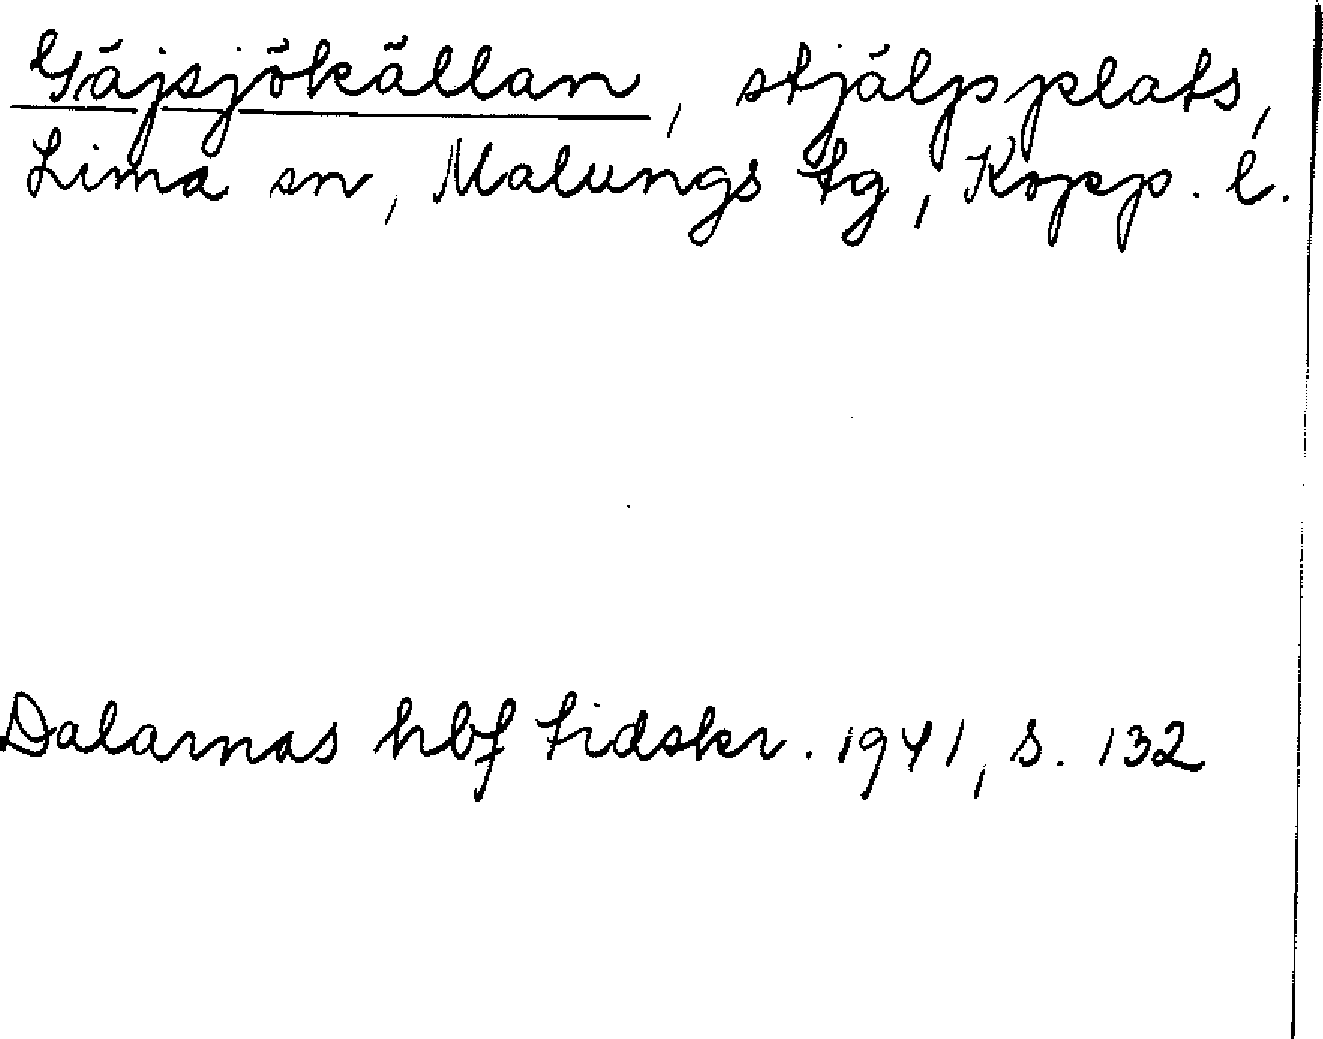 Gäjsjökällan, stjälpplats,
Lima sn, Malungs tg, Kopp. l.
Dalarnas hbf tidskr. 1941, s. 132